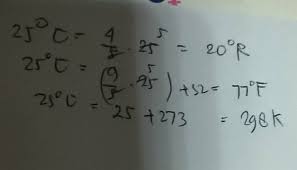 25°C = 4/5 · 25 5 = 20°R
25°C = (9/5 · 25 5) + 32 = 77°F
25°C = 25 + 273 = 298K